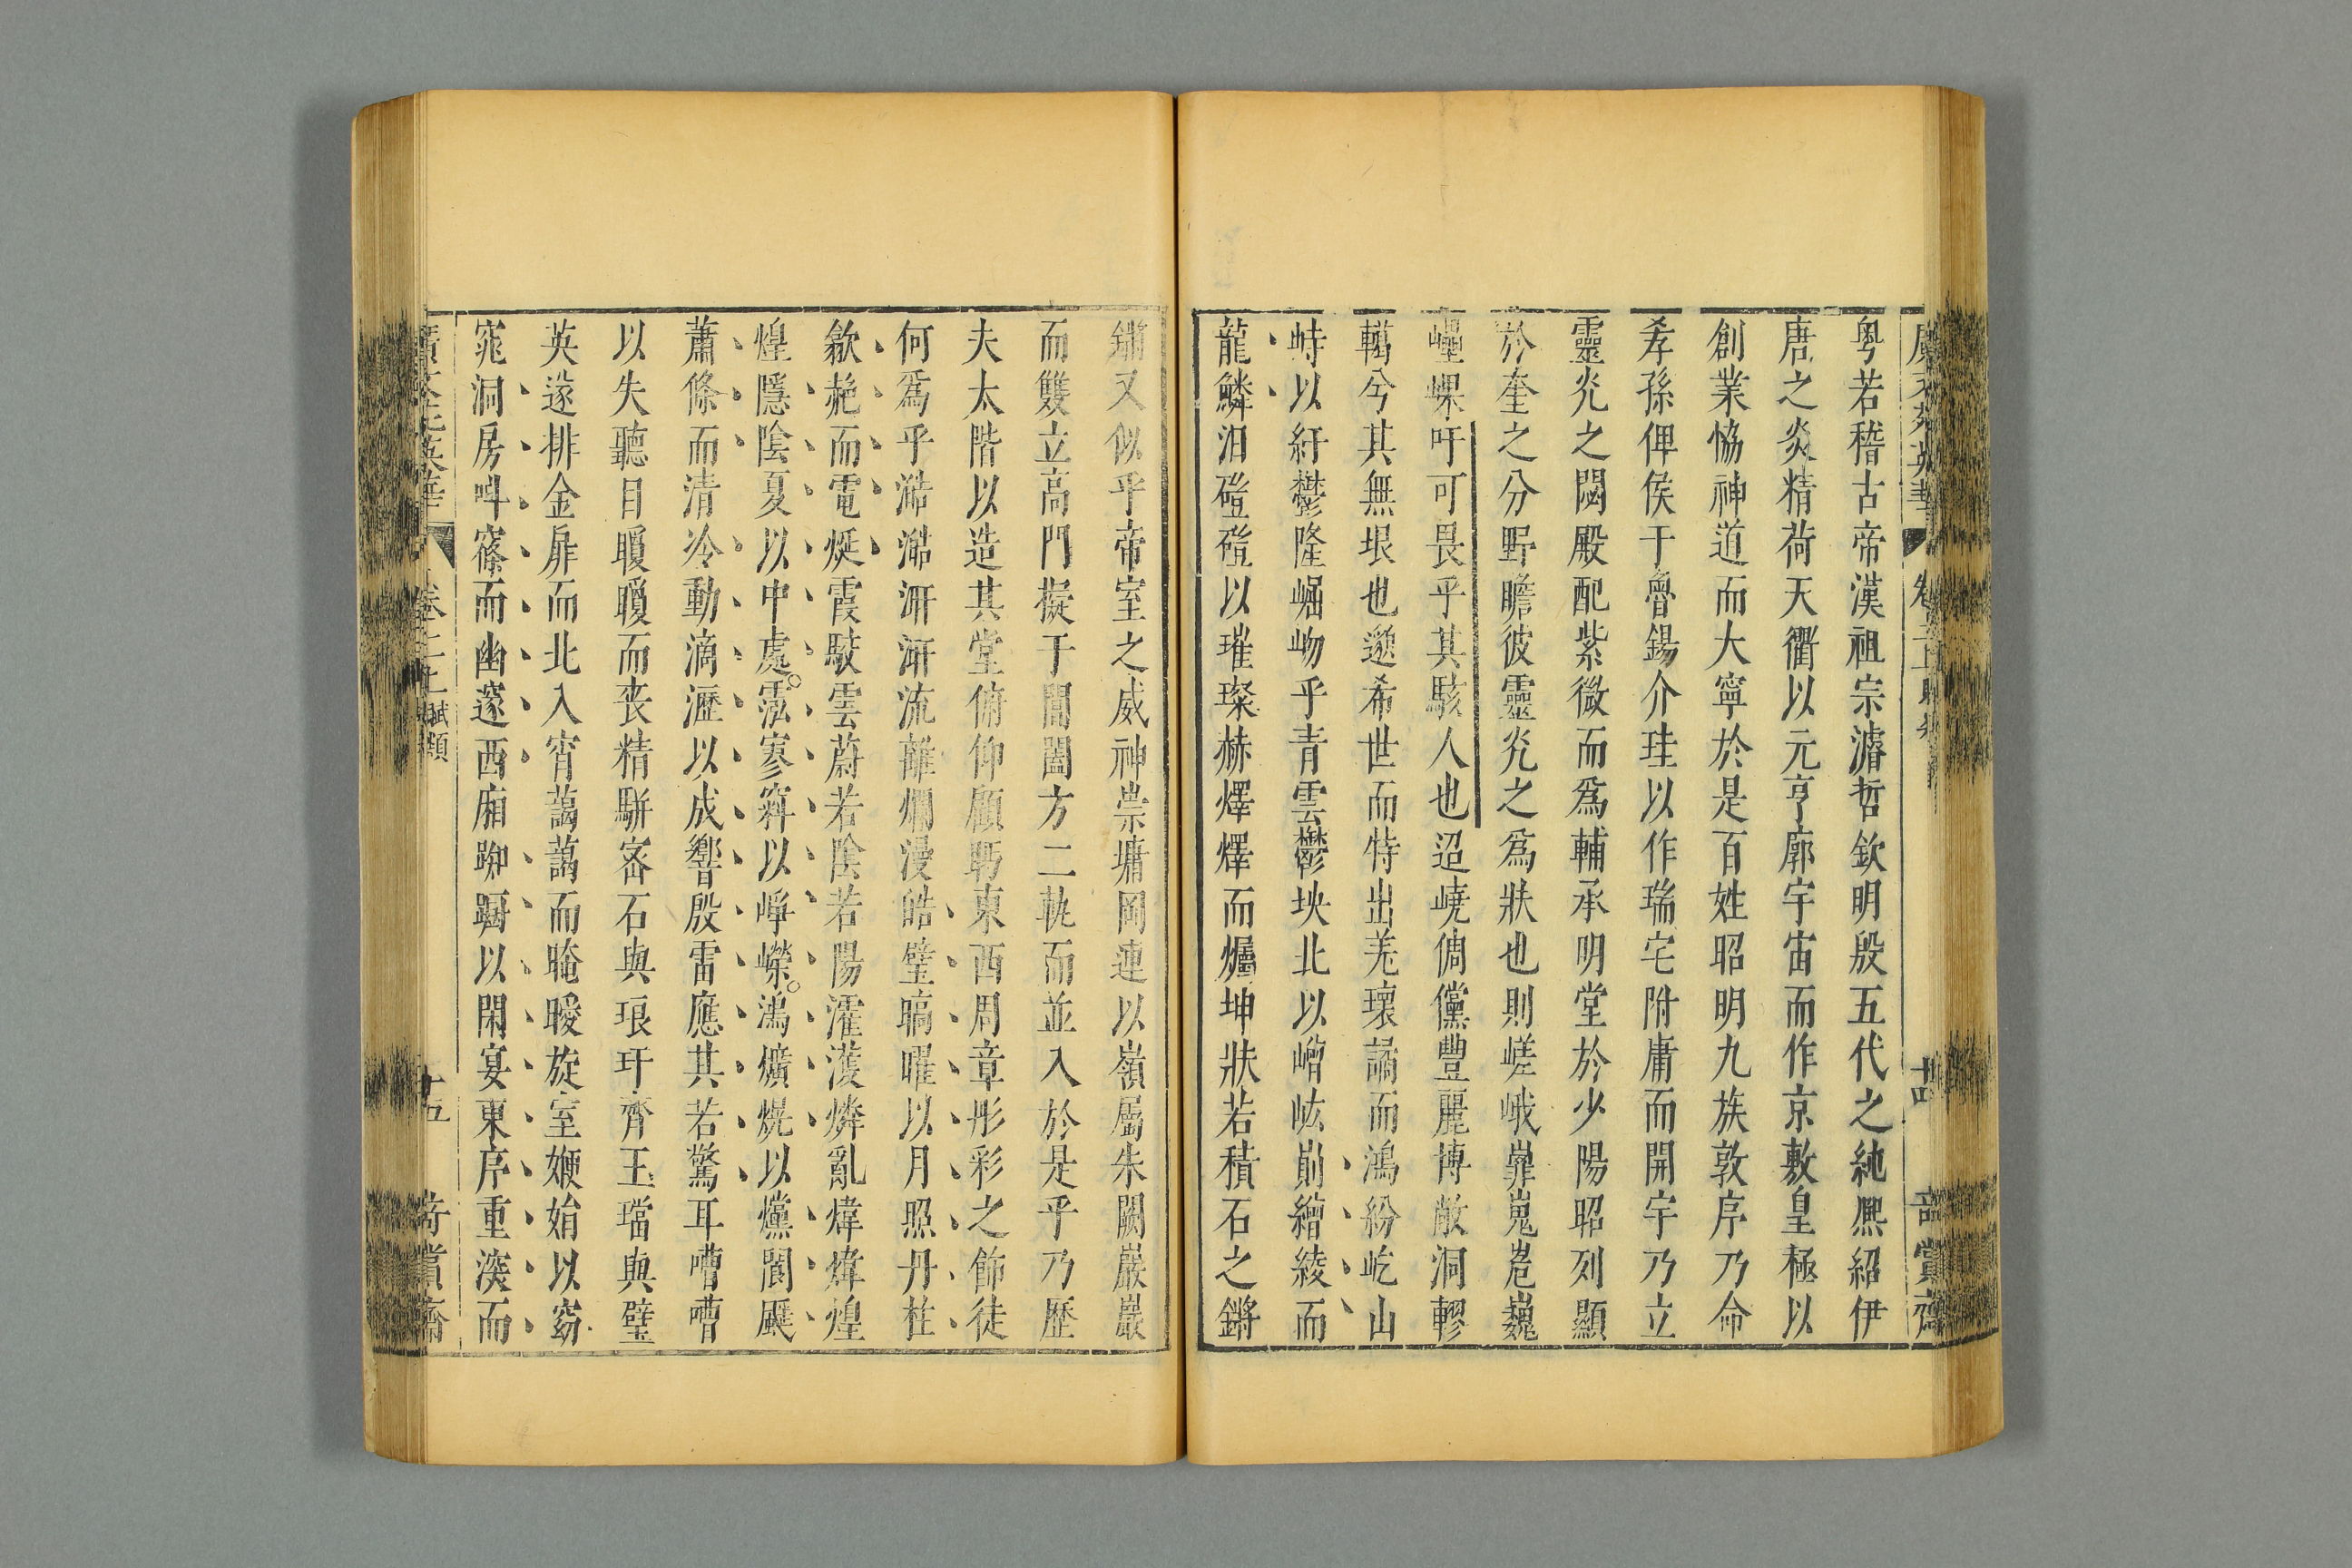 粤若稽古帝漢祖宗濬哲欽明殷五代之純熙紹伊
唐之炎精荷天衢以元亨廓宇宙而作京敷皇極以
創業恊神道而大寧於是百姓昭明九族敦序乃命
孝孫俾侯于魯錫介珪以作瑞宅附庸而開宇乃立
靈光之閟殿配紫微而爲輔承明堂於少陽昭列顯
於奎之分野瞻彼靈光之爲狀也則嵯峨嶵嵬峞巍
㠥㟎吁可畏乎其駭人也迢嶢倜儻豐麗博敞洞轇
轕兮其無垠也邈希世而特出羌瓌譎而鴻紛屹山
峙以紆鬱隆崛岉乎青雲鬱坱北以嶒峵崱繒綾而
龍鱗汨磑磑以璀璨赫燡燡而爥坤狀若積石之鏘
鏘又似乎帝室之威神崇墉岡連以嶺屬朱闕巖巖
而雙立高門擬于閶闔方二軌而並入於是乎乃歷
夫太階以造其堂俯仰顧眄東西周章彤彩之飾徒
何爲乎澔澔涆涆流離爛漫皓璧暠曜以月照丹柱
歙赩而電烻霞駮雲蔚若陰若陽瀖濩燐亂煒煒煌
煌隱陰夏以中處霐寥窲以崢嶸鴻爌熀以爣閬飋
蕭條而清冷動滴瀝以成響殷雷應其若驚耳嘈嘈
以失聽目矎矎而丧精駢宻石與琅玕齊玉璫與璧
英遂排金扉而北入宵藹藹而晻曖旋室㛹娟以窈
窕洞房叫窱而幽邃西廂踟蹰以閑宴東序重深而
卷二上 賦類
十五
奇賞齋
十四
奇賞齋